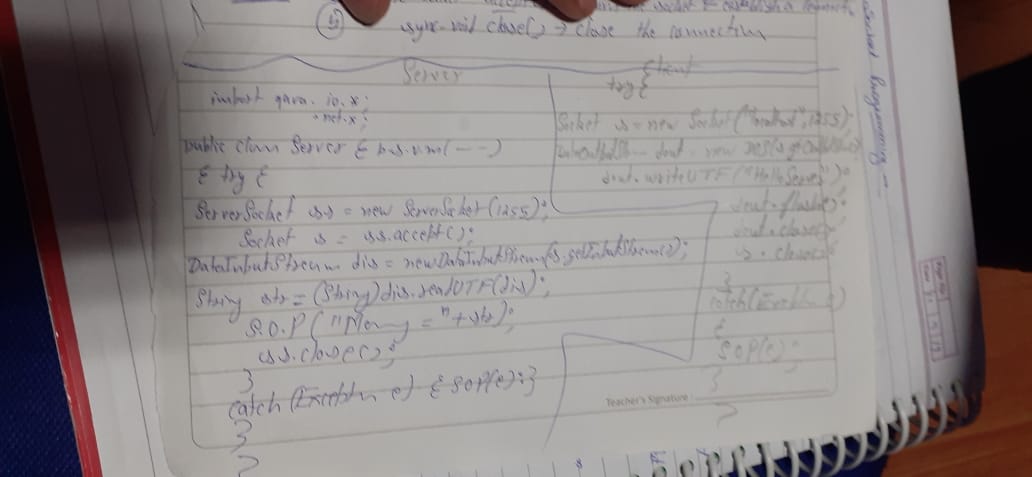 ④ sync. void close() → close the connection
Server
import java.io.*;
.net.*;
public class Server { p.s.v.m(---)
{ try {
ServerSocket ss = new ServerSocket(1255);
Socket s = ss.accept();
DataInputStream dis = new DataInputStream(s.getInputStream());
String str = (String)dis.readUTF(dis);
S.O.P("Mesg = "+str);
ss.close();
}
catch (Exception e) { SOP(e);}
}
}
Client
try {
Socket s = new Socket("localhost",1255);
dout = new
dout.writeUTF("Hello Server");
dout.flush();
dout.close();
s.close();
}
catch(Exception e)
{
SOP(e);
}
}
Teacher's Signature
Socket Programming